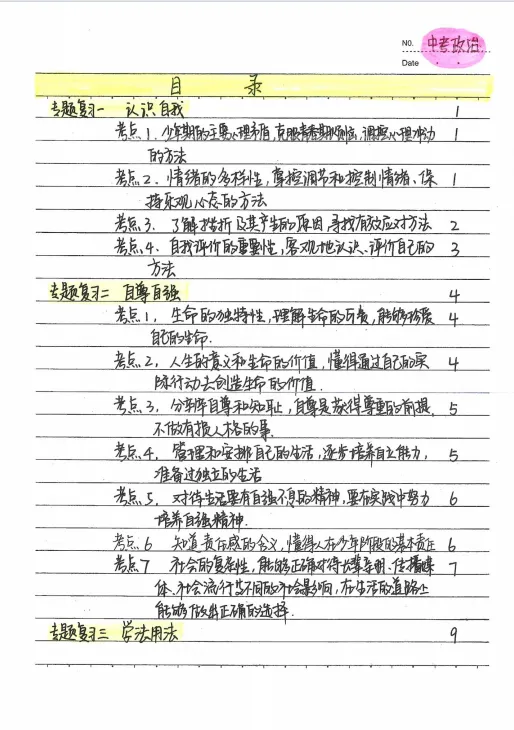 NO. 中考政治
Date
目 录
专题复习一 认识自我 1
考点1. 少年期的主要心理矛盾,克服青春期烦恼,调控心理冲动 1
的方法
考点2. 情绪的多样性,掌控调节和控制情绪、保 1
持乐观心态的方法
考点3. 了解挫折及其产生的原因 寻找有效应对方法 2
考点4. 自我评价的重要性,客观地认识、评价自己的 3
方法
专题复习二 自尊自强 4
考点1. 生命的独特性,理解生命的可贵,能够珍爱 4
自己的生命.
考点2. 人生的意义和生命的价值,懂得通过自己的实 4
际行动去创造生命的价值.
考点3. 分辨自尊和知耻,自尊是获得尊重的前提, 5
不做有损人格的事.
考点4. 管理和安排自己的生活,逐步培养自立能力, 5
准备过独立的生活
考点5. 对待生活要有自强不息的精神,要在实践中努力 6
培养自强精神.
考点6 知道责任感的含义,懂得人在少年阶段的基本责任 6
考点7 社会的复杂性,能够正确对待长辈亲朋、传播媒 7
体、社会流行等不同的社会影响,在生活的道路上
能够做出正确的选择.
专题复习三 学法用法 9